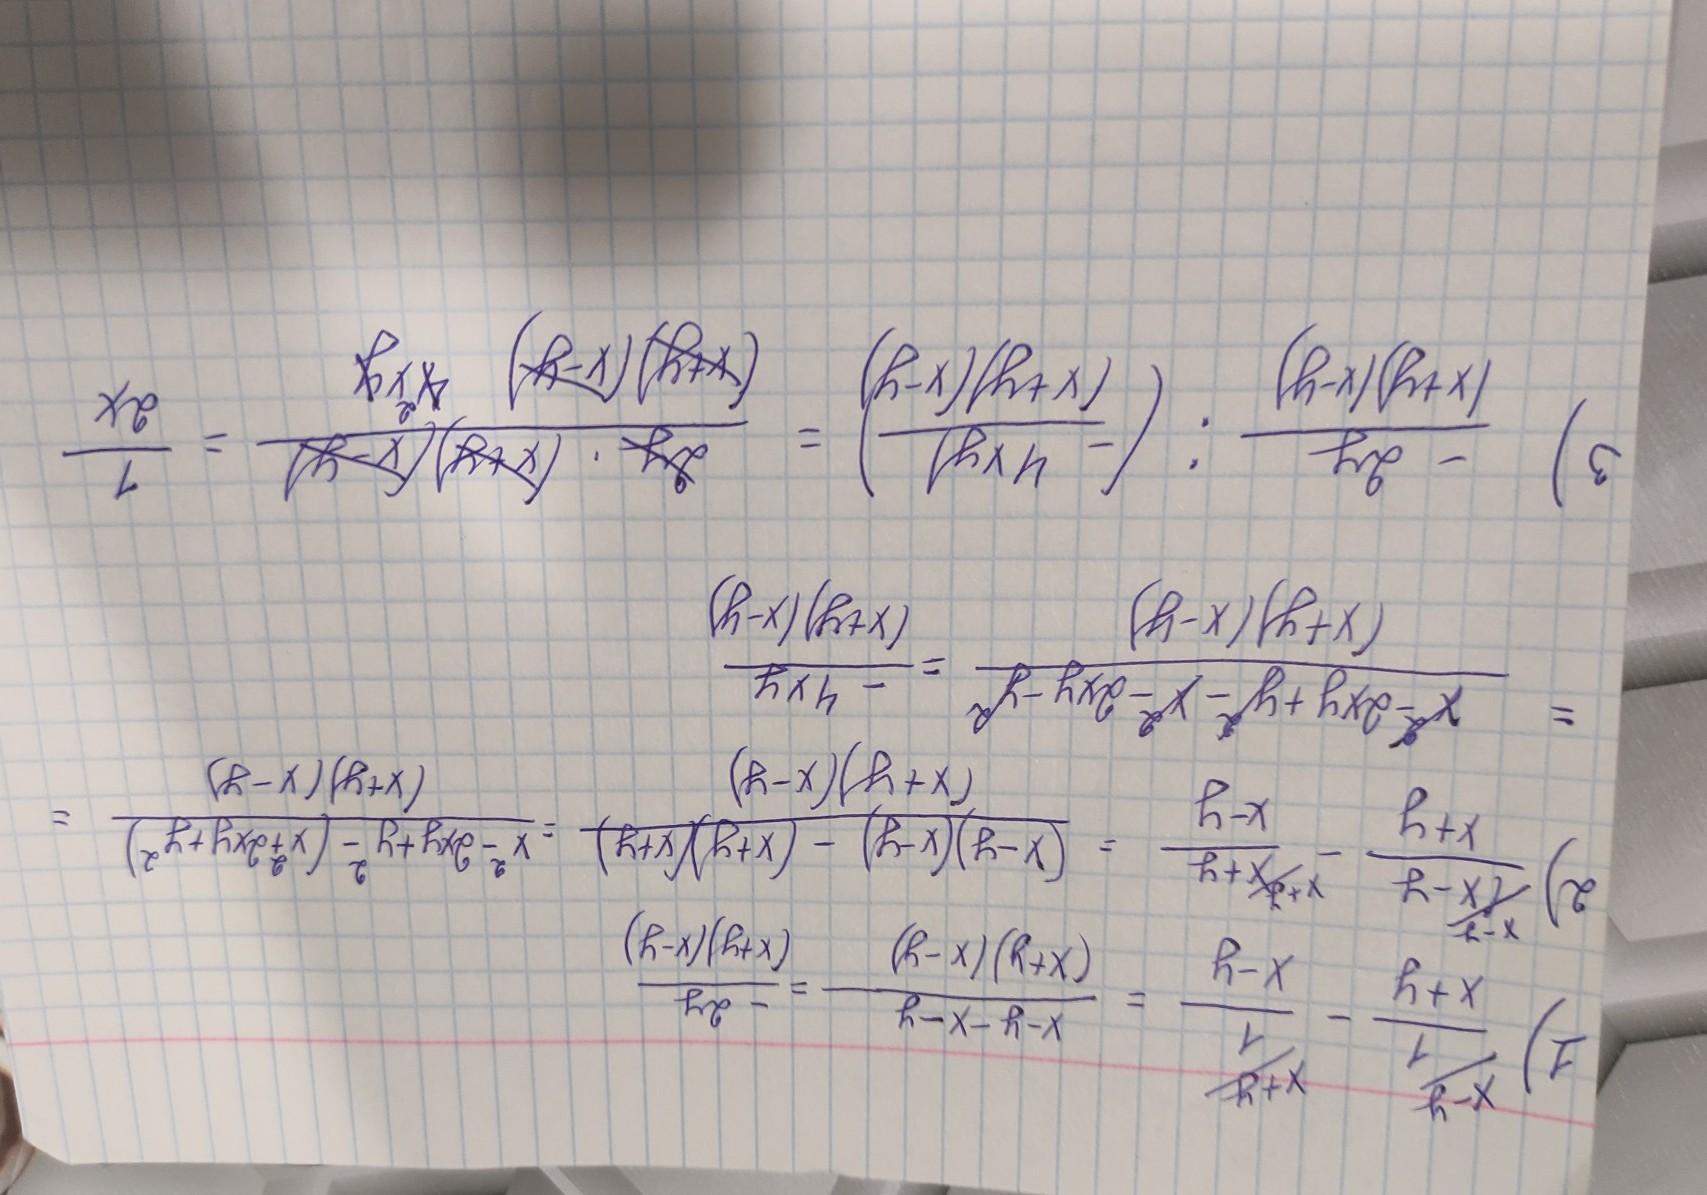 1) \frac{1}{x+y}^{/x-y} - \frac{1}{x-y}^{/x+y} = \frac{x-y-x-y}{(x+y)(x-y)} = \frac{-2y}{(x+y)(x-y)}
2) \frac{x-y}{x+y}^{/x-y} - \frac{x+y}{x-y}^{/x+y} = \frac{(x-y)(x-y)-(x+y)(x+y)}{(x+y)(x-y)} = \frac{x^2-2xy+y^2-(x^2+2xy+y^2)}{(x+y)(x-y)} =
= \frac{x^2-2xy+y^2-x^2-2xy-y^2}{(x+y)(x-y)} = \frac{-4xy}{(x+y)(x-y)}
3) \frac{-2y}{(x+y)(x-y)} : \left(\frac{-4xy)}{(x+y)(x-y)}\right) = \frac{2y \cdot (x+y)(x-y)}{(x+y)(x-y) 4_2xy} = \frac{1}{2x}